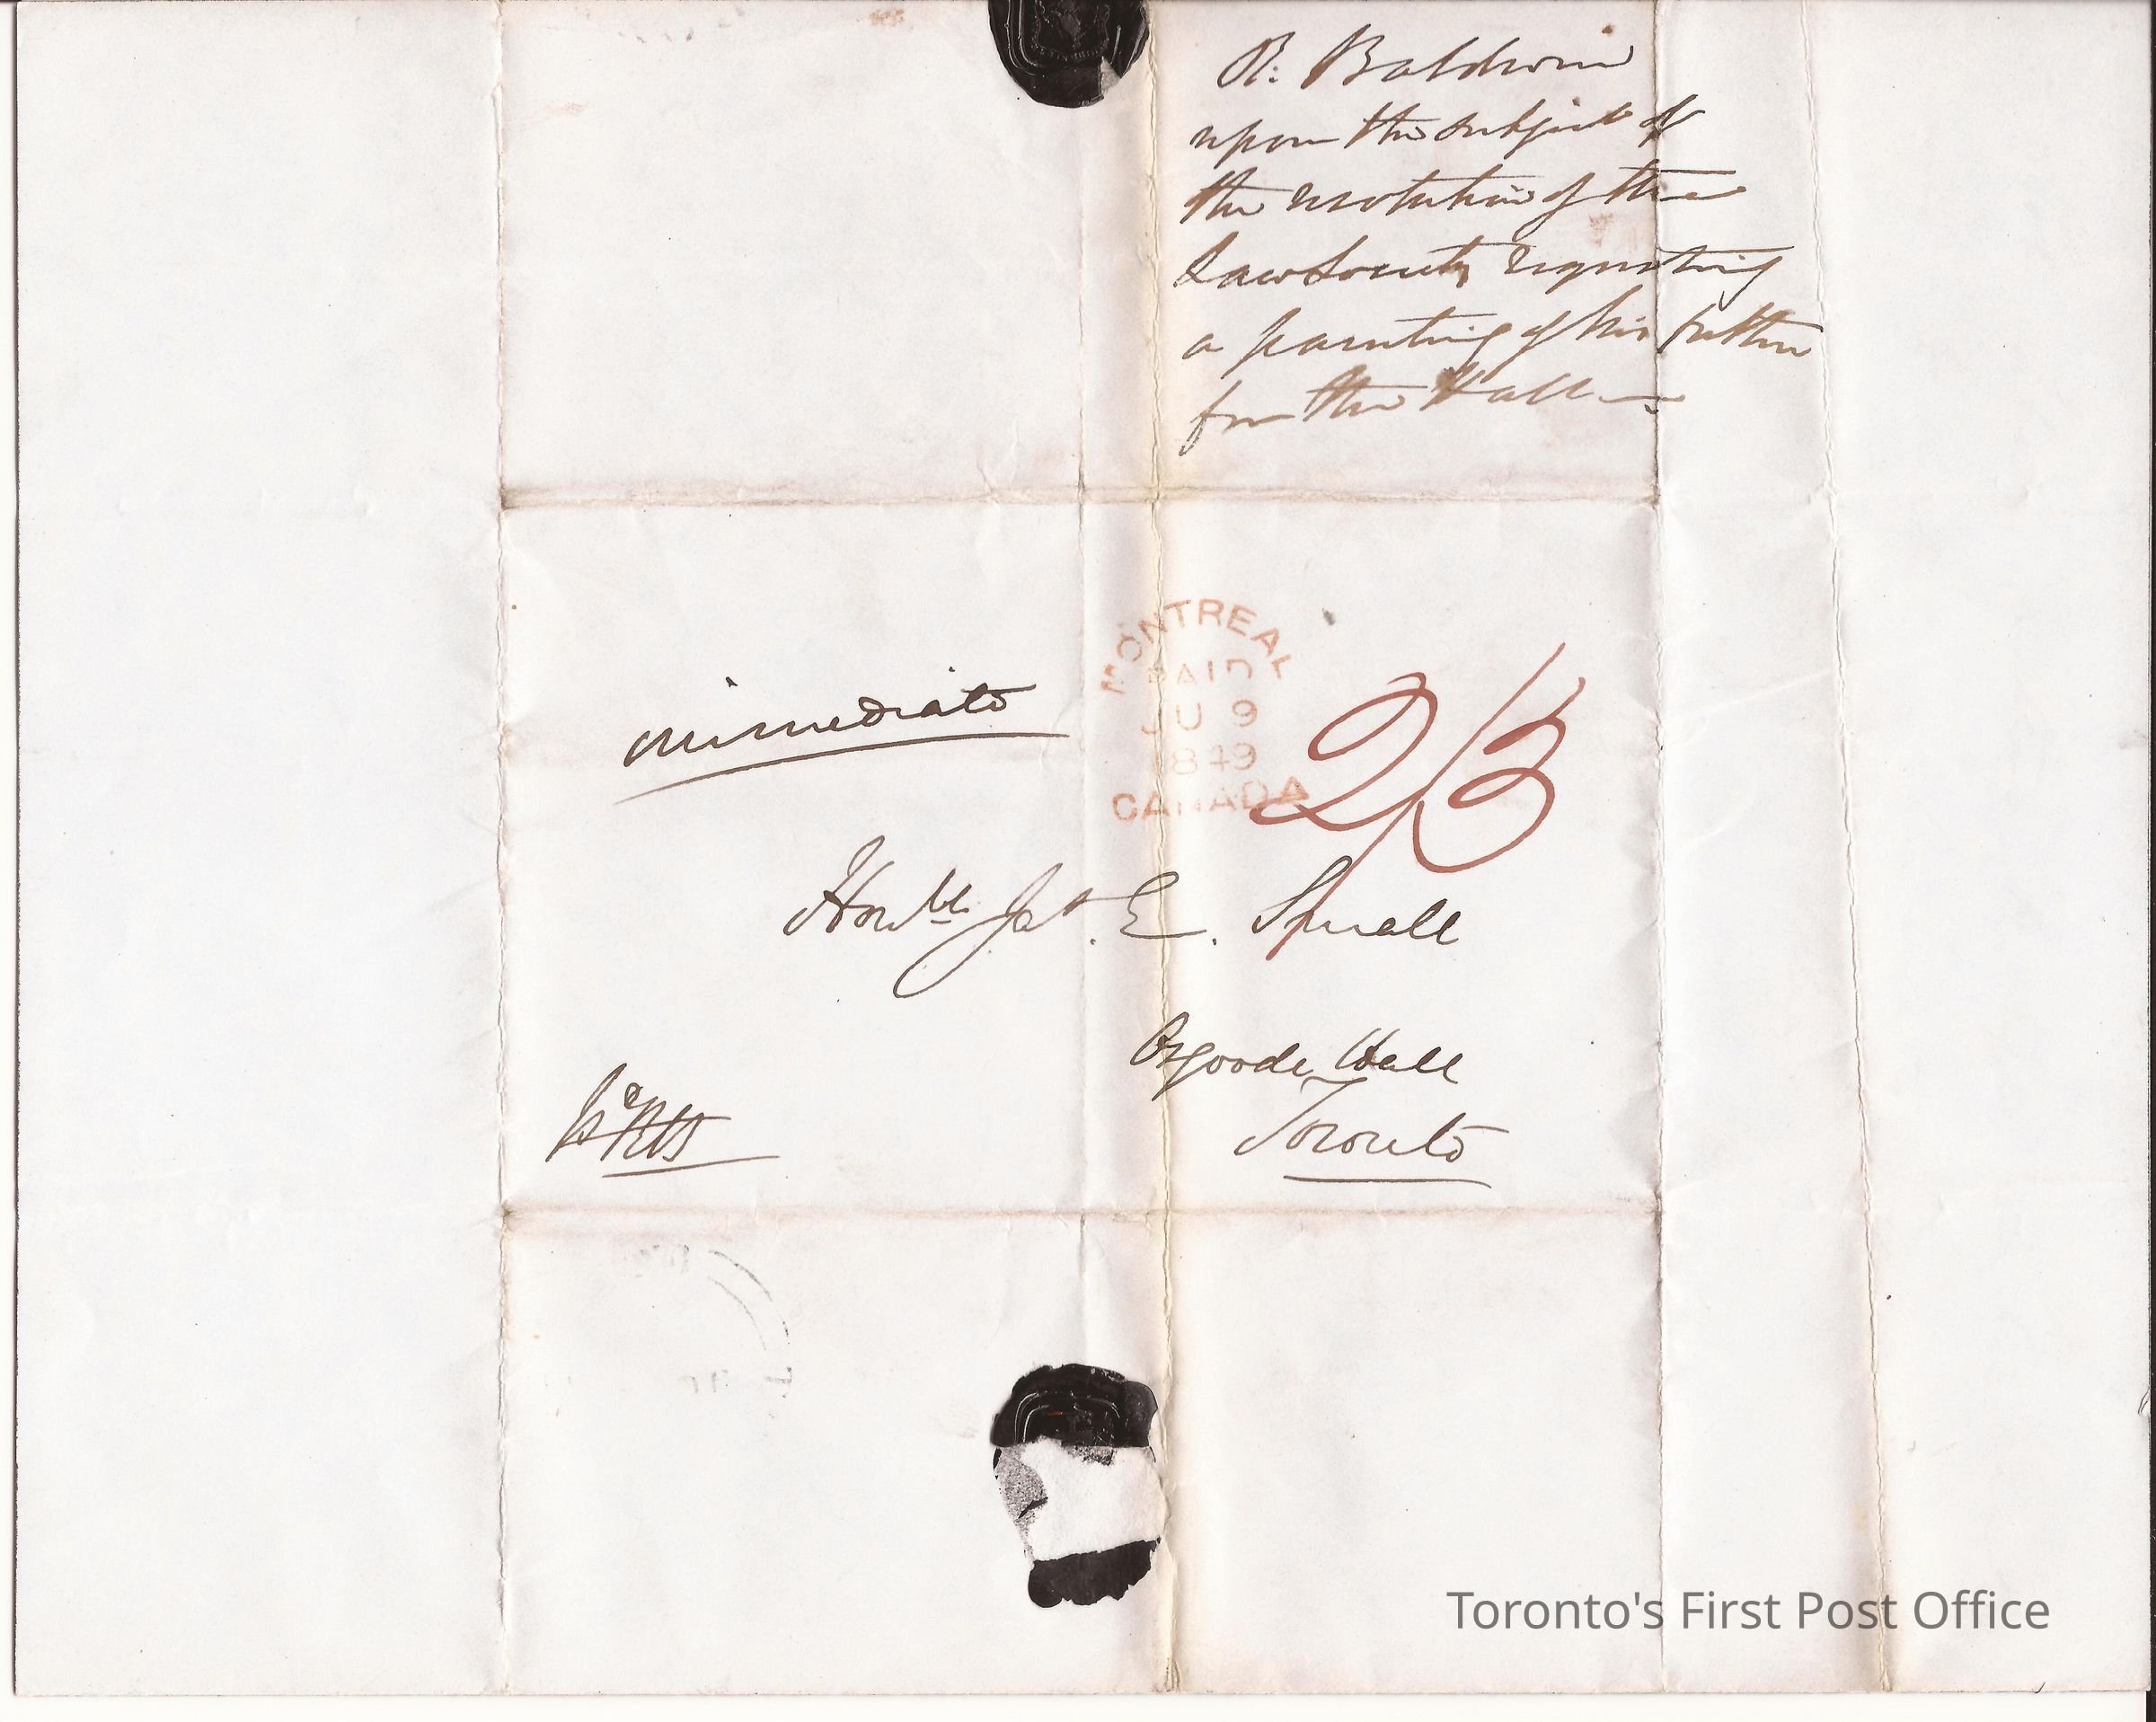 R. Baldwin
upon the subject of
the resolution of the
Law Society requesting
a painting of his father
for the Hall
immediate
MONTREAL
PAID
JU 9
1849
CANADA
2/3
Honble Jas. E. Small
Osgoode Hall
Toronto
Toronto's First Post Office